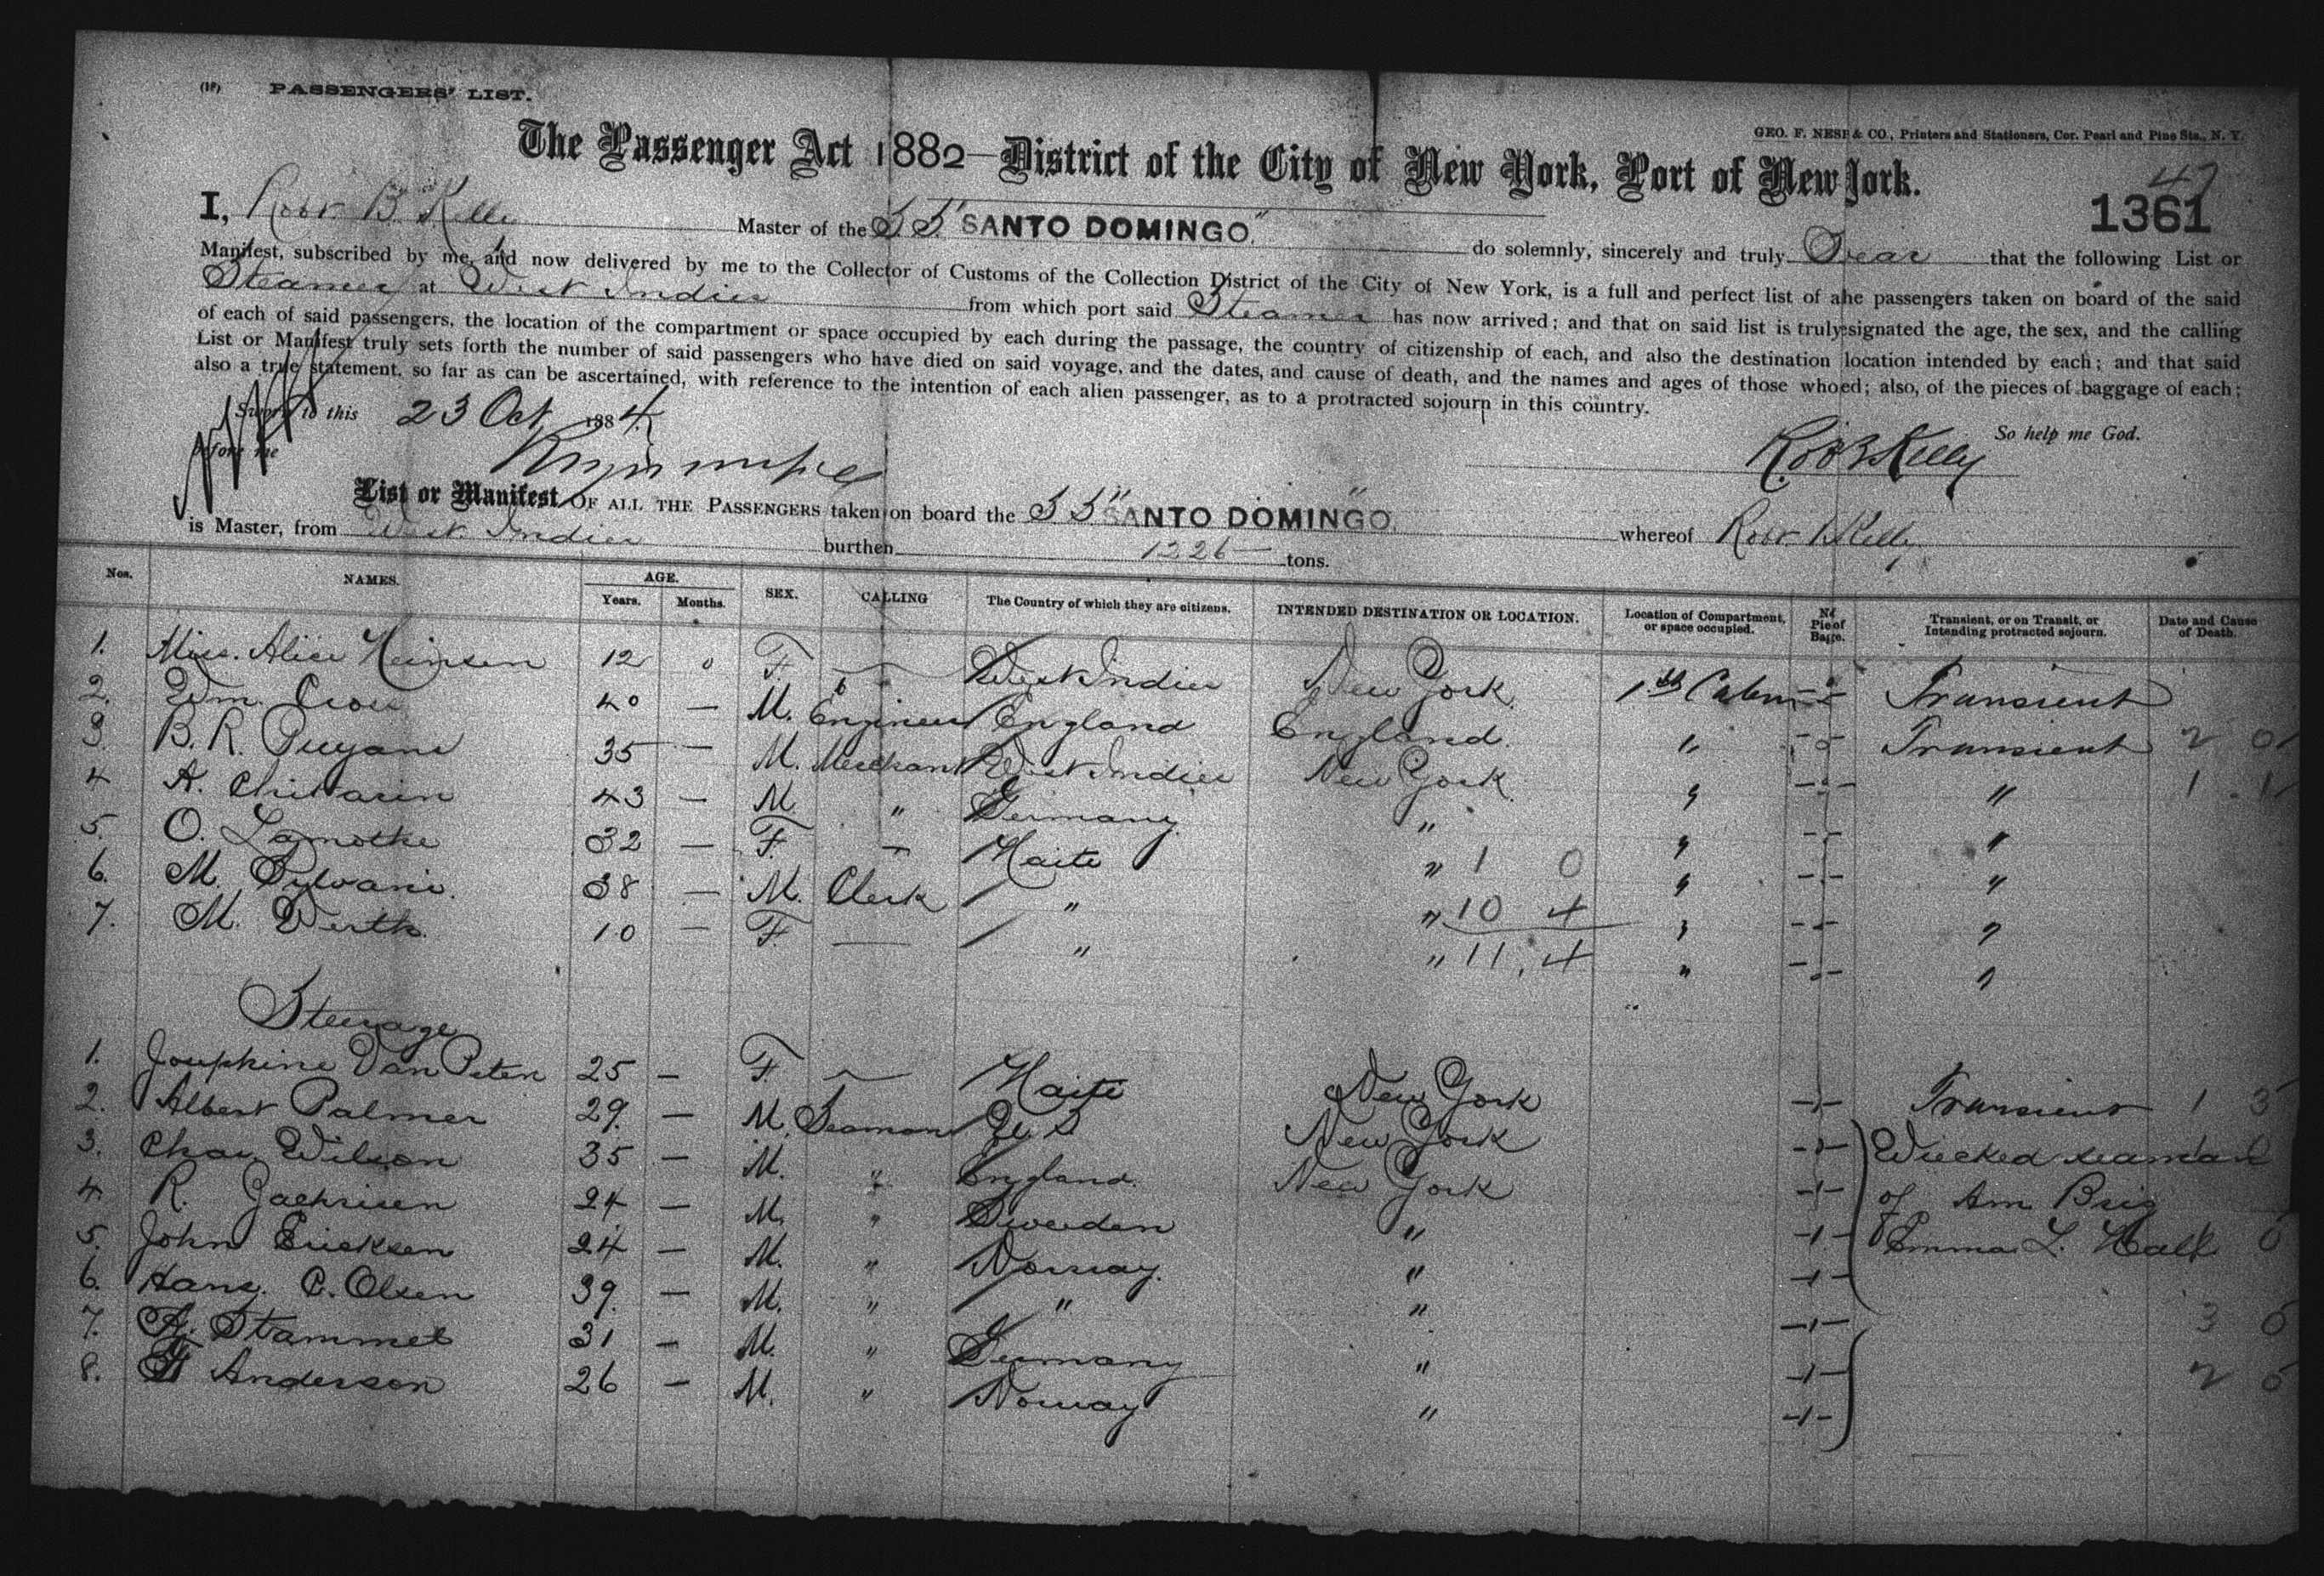 (18) PASSENGERS' LIST.
GEO. F. NESBIT & CO., Printers and Stationers, Cor. Pearl and Pine Sts., N. Y.
The Passenger Act 1882—District of the City of New York, Port of New York.
47
1361
I, Robt B. Kelly Master of the S S "SANTO DOMINGO" do solemnly, sincerely and truly Swear that the following List or
Manifest, subscribed by me, and now delivered by me to the Collector of Customs of the Collection District of the City of New York, is a full and perfect list of all the passengers taken on board of the said
Steamer at West Indies from which port said Steamer has now arrived; and that on said list is truly designated the age, the sex, and the calling
of each of said passengers, the location of the compartment or space occupied by each during the passage, the country of citizenship of each, and also the destination location intended by each; and that said
List or Manifest truly sets forth the number of said passengers who have died on said voyage, and the dates, and cause of death, and the names and ages of those who died; also, of the pieces of baggage of each;
also a true statement, so far as can be ascertained, with reference to the intention of each alien passenger, as to a protracted sojourn in this country.
Sworn to this 23 Oct 1884.
So help me God.
before me
Rob B Kelly
List or Manifest OF ALL THE PASSENGERS taken on board the S S "SANTO DOMINGO" whereof Robt B Kelly
is Master, from West Indies burthen 1226 tons.
Nos. NAMES. AGE. Years. Months. SEX. CALLING The Country of which they are citizens. INTENDED DESTINATION OR LOCATION. Location of Compartment, or space occupied. No Pie of Bagge. Transient, or on Transit, or Intending protracted sojourn. Date and Cause of Death.
1. Miss. Alice Heinsen 12 0 F. — West Indies New York 1st Cabin Transient
2. Wm. 40 — M. Engineer England England " Transient 2
3. B. R. 35 — M. Merchant West Indies New York " " 1
4 A. 43 — M " Germany " " "
5. O. Lamothe 32 — F. — Haiti " 1 0 " "
6. M. Sylvani 38 — M. Clerk " " 10 4 " "
7. M. Werth 10 — F. — " " 11, 4 " "
Steerage
1. Josephine Van Peten 25 — F. — Haiti New York -1- Transient 1 3
2. Albert Palmer 29. — M. Seaman U S New York -1- Wrecked seamen
3. Chas. Wilson 35 — M. " England. New York -1- of Am Brig
4. R. 24 — M. " Sweeden " -1- Emma L. Hall
5. John Ericksen 24 — M. " Norway. " -1-
6. Hans. C. Olsen 39. — M. " " " -1- 3
7. A. Stammet 31 — M. " Germany " -1- 2
8. F Anderson 26 — M. " Norway " -1-